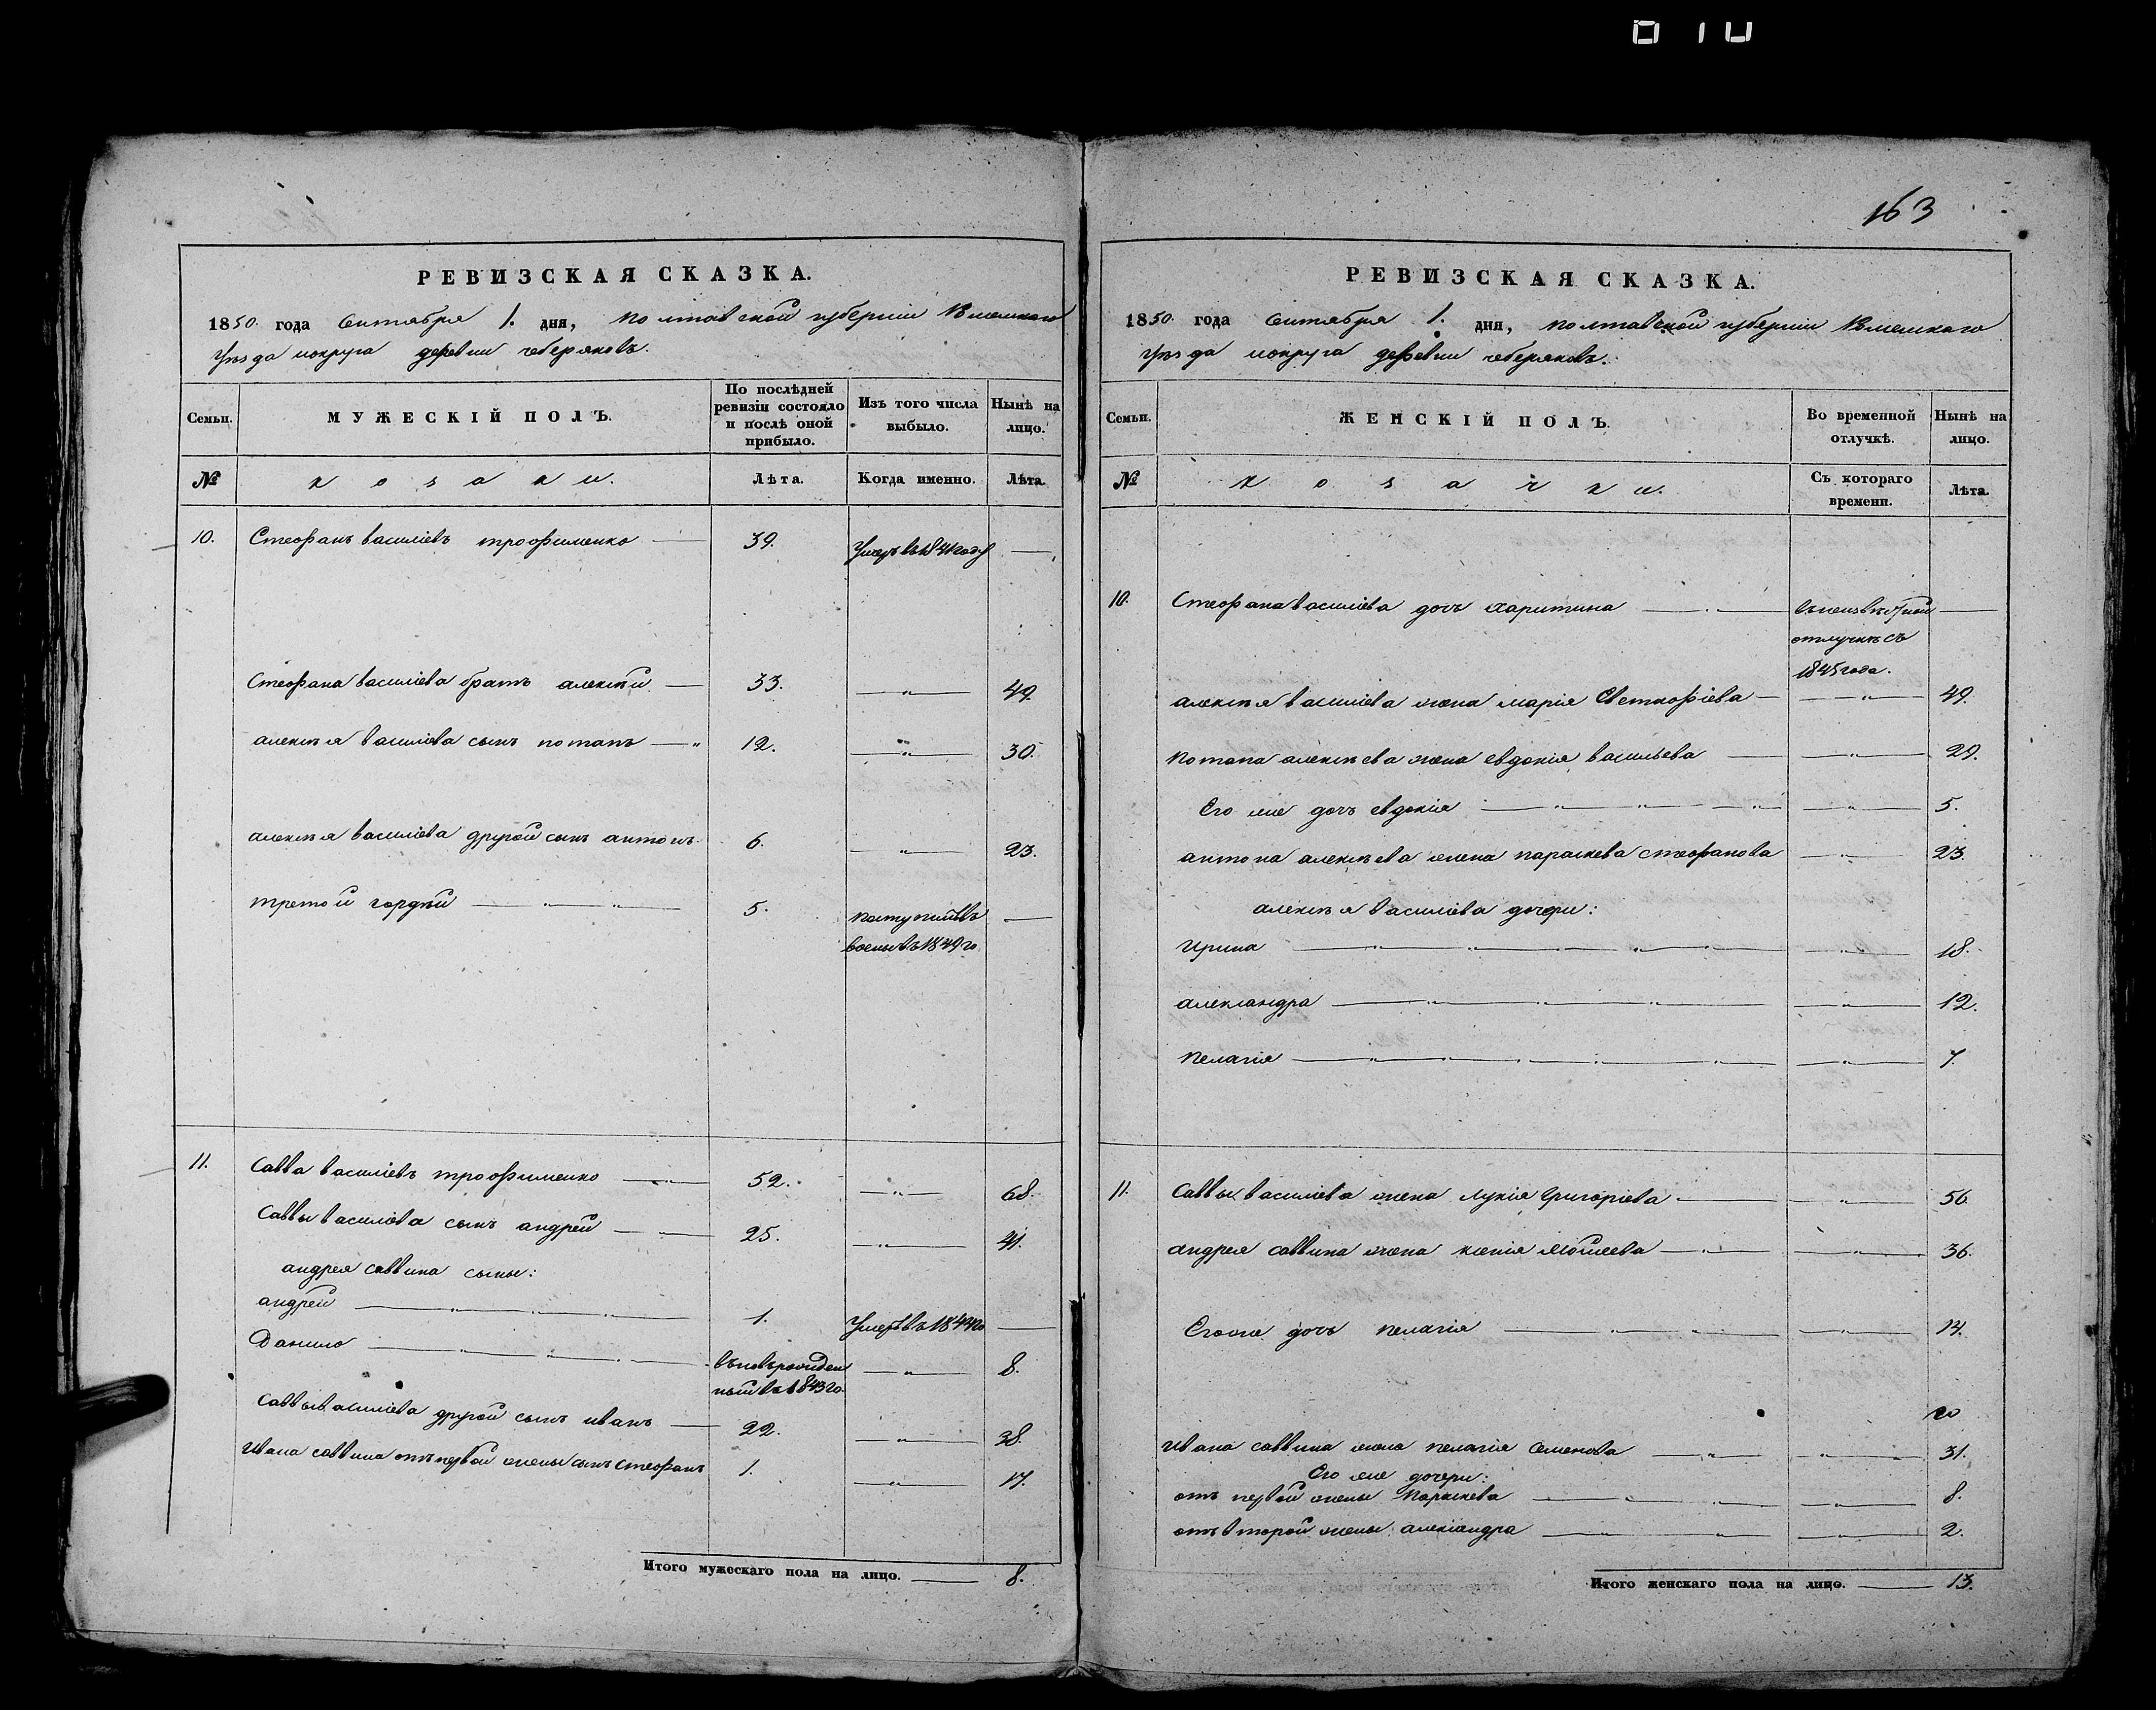 163
РЕВИЗСКАЯ СКАЗКА.
1850 года Сентября 1. дня, Полтавской губернiи
уѣзда и округа деревни чеберяковъ.
Семьи. МУЖЕСКIЙ ПОЛЪ. По послѣдней ревизiи состояло и послѣ оной прибыло. Изъ того числа выбыло. Нынѣ на лицо.
№ козаки. Лѣта. Когда именно. Лѣта.
10. Стефанъ василiевъ трофименко 39. Умеръ въ 1841 году
Стефана василiева братъ алексѣй 33. 49.
алексѣя василiева сынъ потапъ 12. 30.
алексѣя василiева другой сынъ антонъ 6. 23.
третой гордѣй 5. поступилъ въ
военны въ 1849 го
11. Савва василiевъ трофименко 52. 68.
Саввы василiева сынъ андрей 25. 41.
андрея саввина сыны:
андрей 1. Умеръ въ 1844 го
Данило вънов рожден 8.
ный въ 1843 го
Саввы василiева другой сынъ иванъ 22. 38.
Ивана саввина отъ первой жены сынъ стефанъ 1. 17.
Итого мужескаго пола на лицо. 8.
РЕВИЗСКАЯ СКАЗКА.
1850 года Сентября 1. дня, полтавской губернiи
уѣзда и округа деревни чеберяковъ.
Семьи. ЖЕНСКIЙ ПОЛЪ. Во временной отлучкѣ. Нынѣ на лицо.
№ козачки. Съ котораго времени. Лѣта.
10. Стефана василiева дочь харитина въ неизвѣстной
отлучкѣ съ
1845 года.
алексѣя василiева жена марiя Евстафiева 49.
потапа алексѣева жена евдокiя васильева 29.
Его же дочь евдокiя 5.
антона алексѣева жена параскева стефанова 23.
алексѣя василiева дочери:
Ирина 18.
александра 12.
пелагiя 7.
11. Саввы василiева жена Лукiя Григорiева 56.
андрея саввина жена ксенiя Мойсеева 36.
Егоже дочь пелагiя 14.
Ивана саввина жена пелагiя Семенова 31.
Его же дочери:
отъ первой жены Параскева 8.
отъ второй жены александра 2.
Итого женскаго пола на лицо. 13.